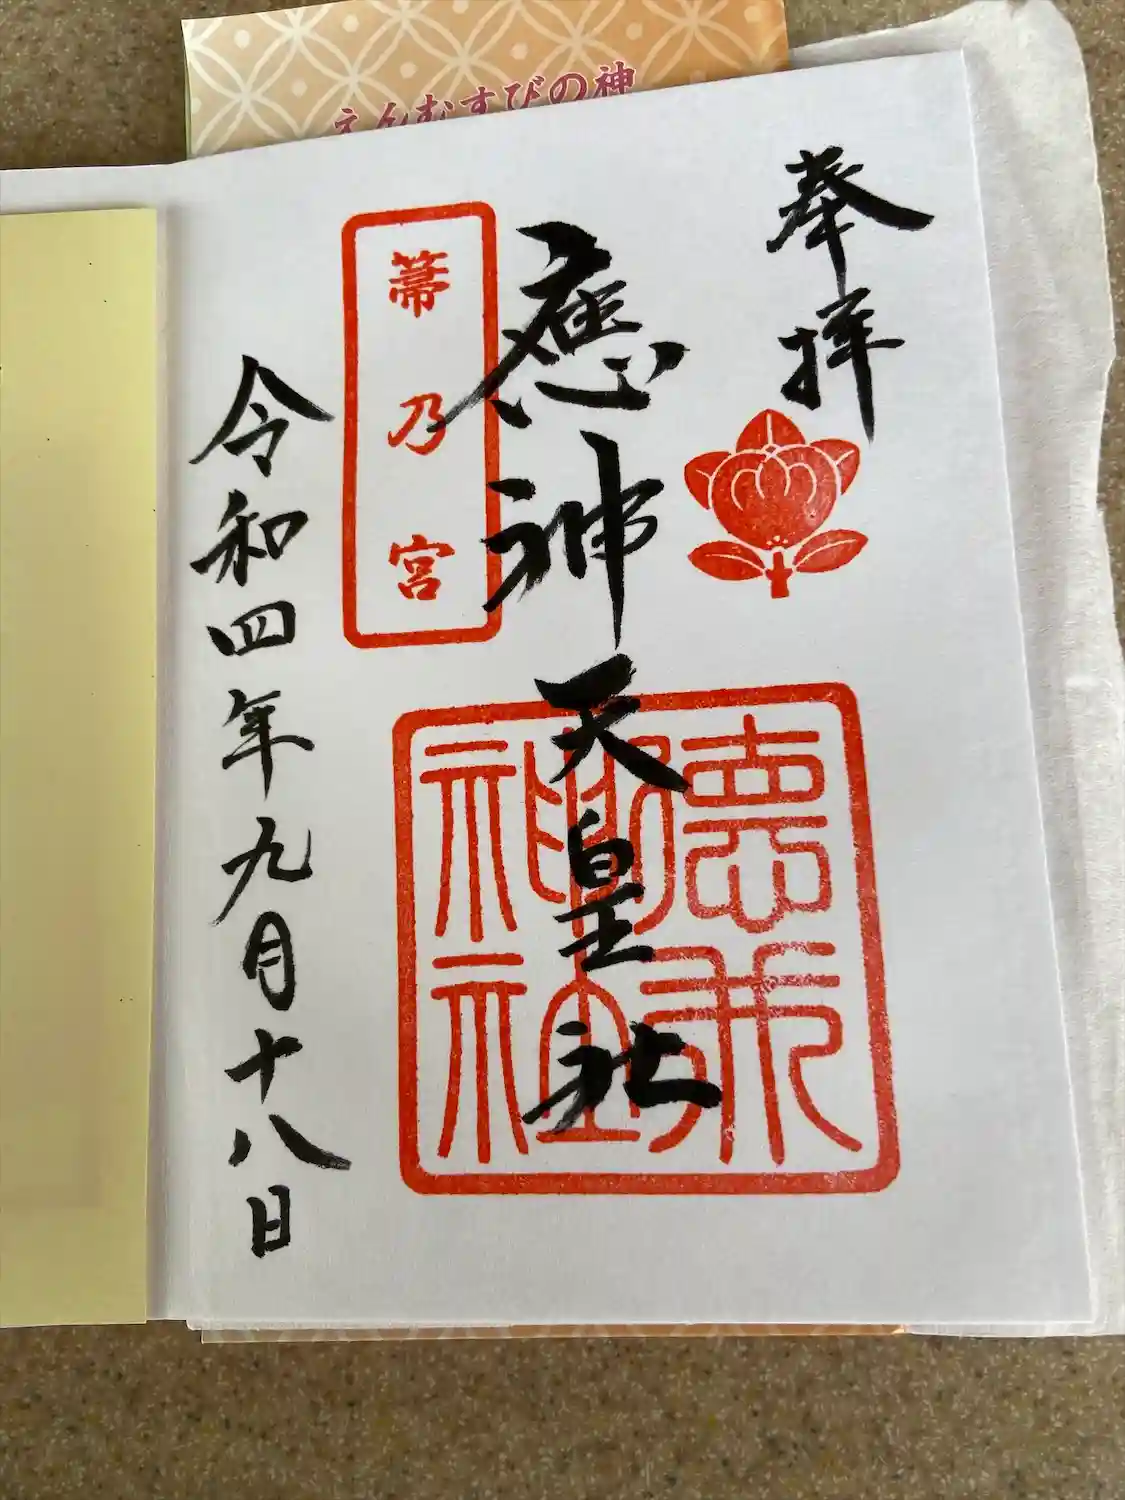 えんむすびの神
奉拝
應神天皇社
箒乃宮
神社
令和四年九月十八日